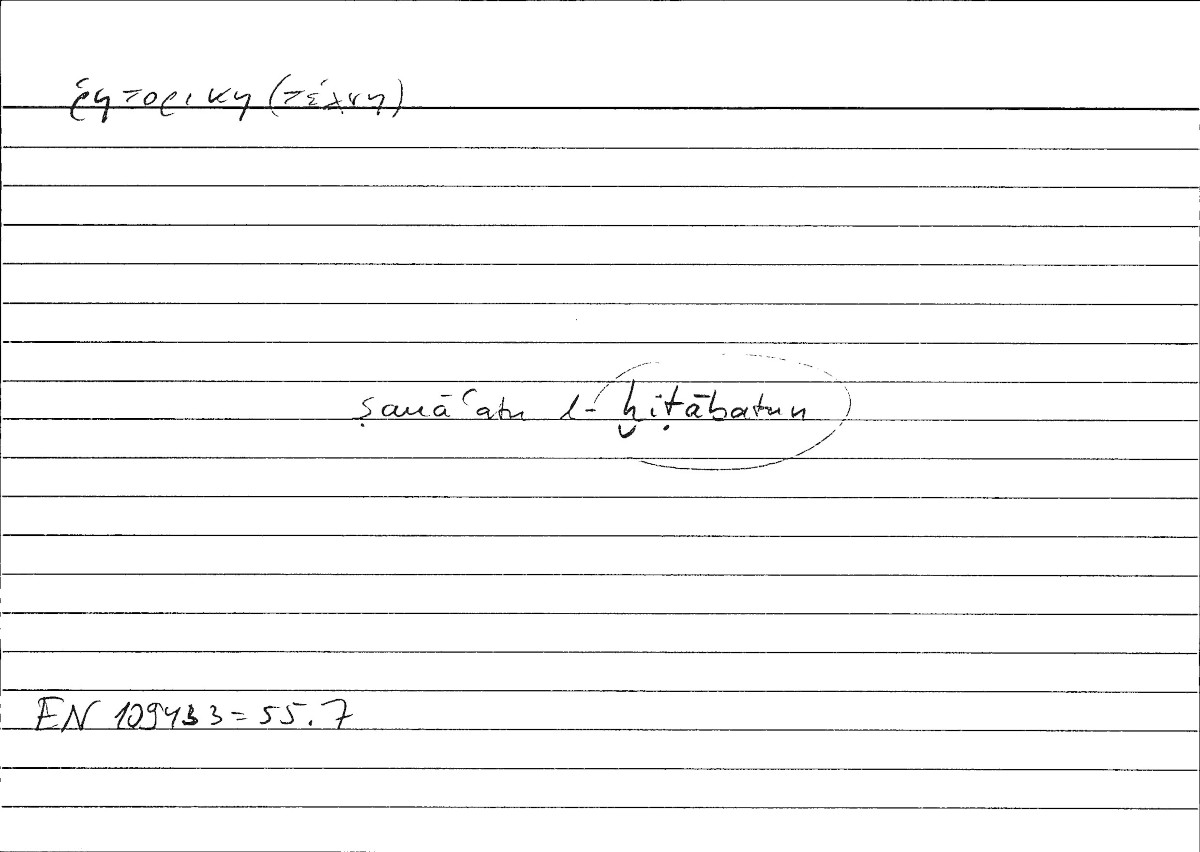 ῥητορικη (τέχνη)
ṣanāʿatu l-ḫiṭābatun
EN 1094b3 = 55.7